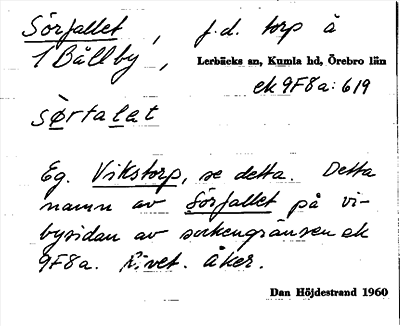 Sörfallet, f.d. torp å
1 Bållby,
Lerbäcks sn, Kumla hd, Örebro län
ek 9F8a:619
sørtalat
Eg. Vikstorp, se detta. Detta
namn av Sörfallet på vi-
bysidan av sockengränsen ek
9F8a. Rivet. Åker.
Dan Höjdestrand 1960